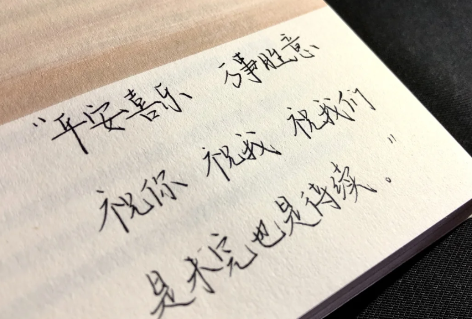 “平安喜乐 万事胜意
祝你 祝我 祝我们
是未完也是待续。”